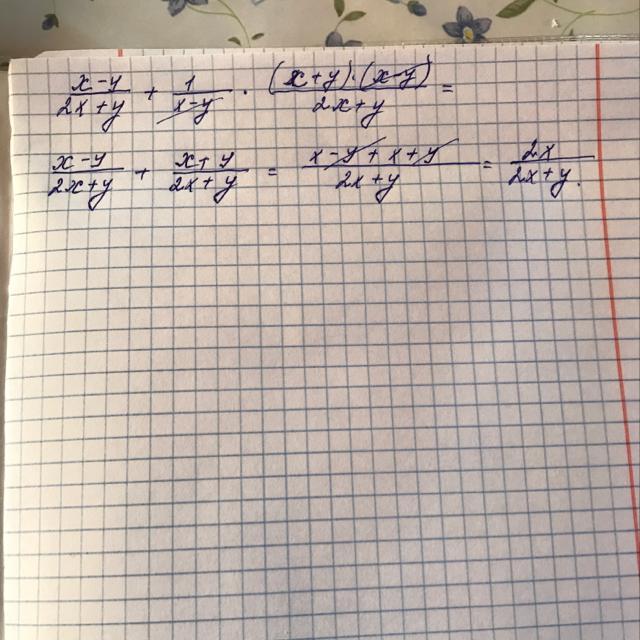 (x-y)/(2x+y) + 1/(x-y) · ((x+y)·(x-y))/(2x+y) =
(x-y)/(2x+y) + (x+y)/(2x+y) = (x-y+x+y)/(2x+y) = 2x/(2x+y).